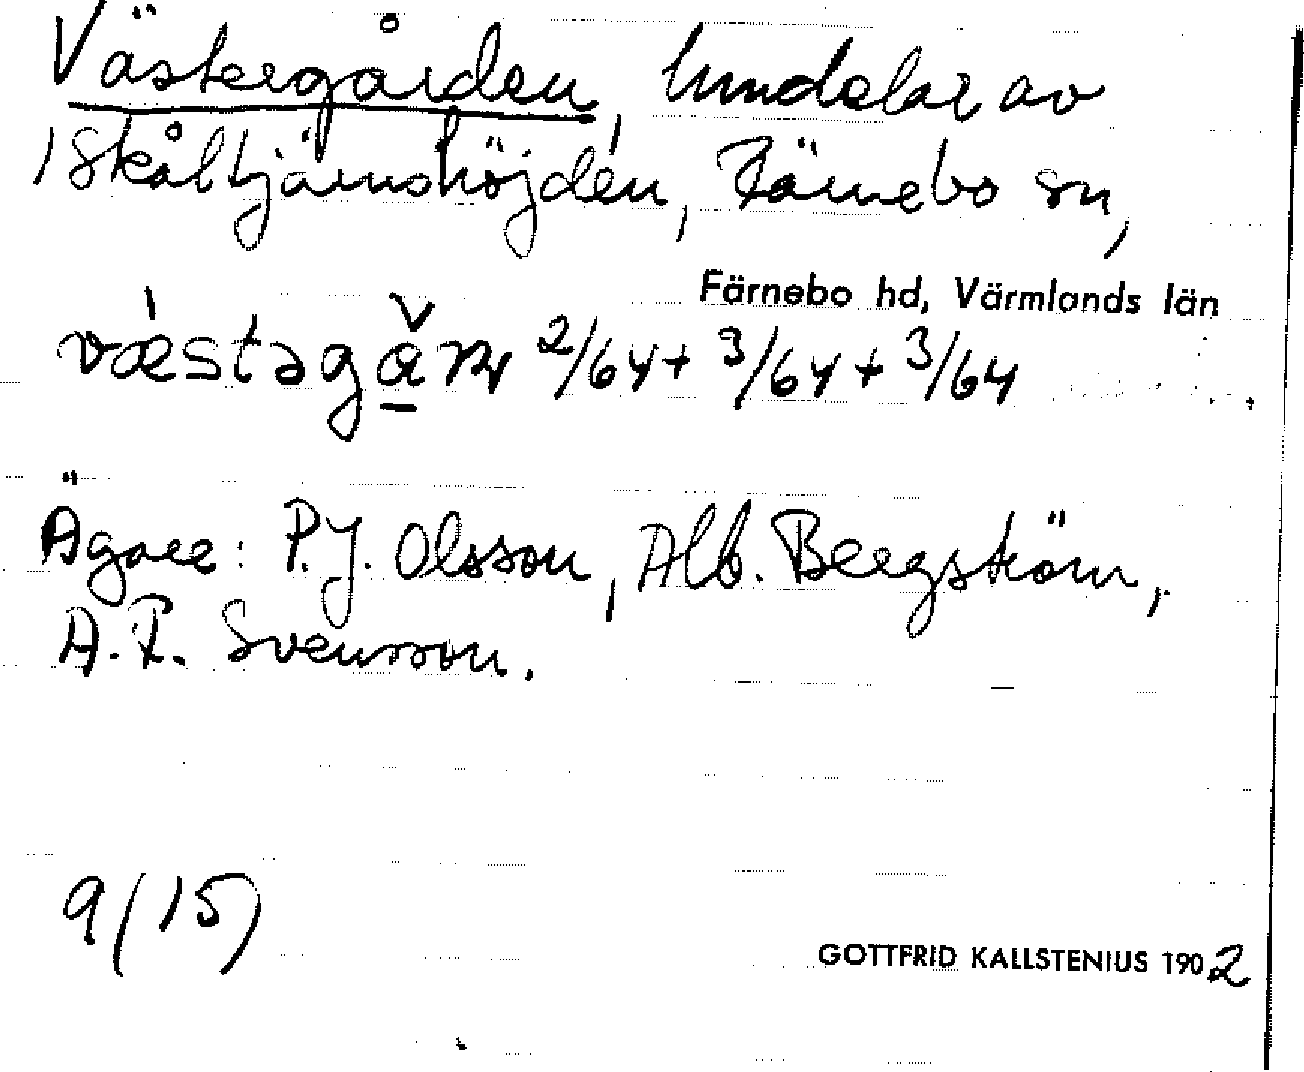 Västergården, hmdelar av
1 Skåltjärnshöjden, Färnebo sn,
Färnebo hd, Värmlands län
væ̍stəgǎ̠ɳ 2/64 + 3/64 + 3/64
Ägare: P.J. Olsson, Alb. Bergström,
A. F. Svensson.
9/15)
GOTTFRID KALLSTENIUS 1902